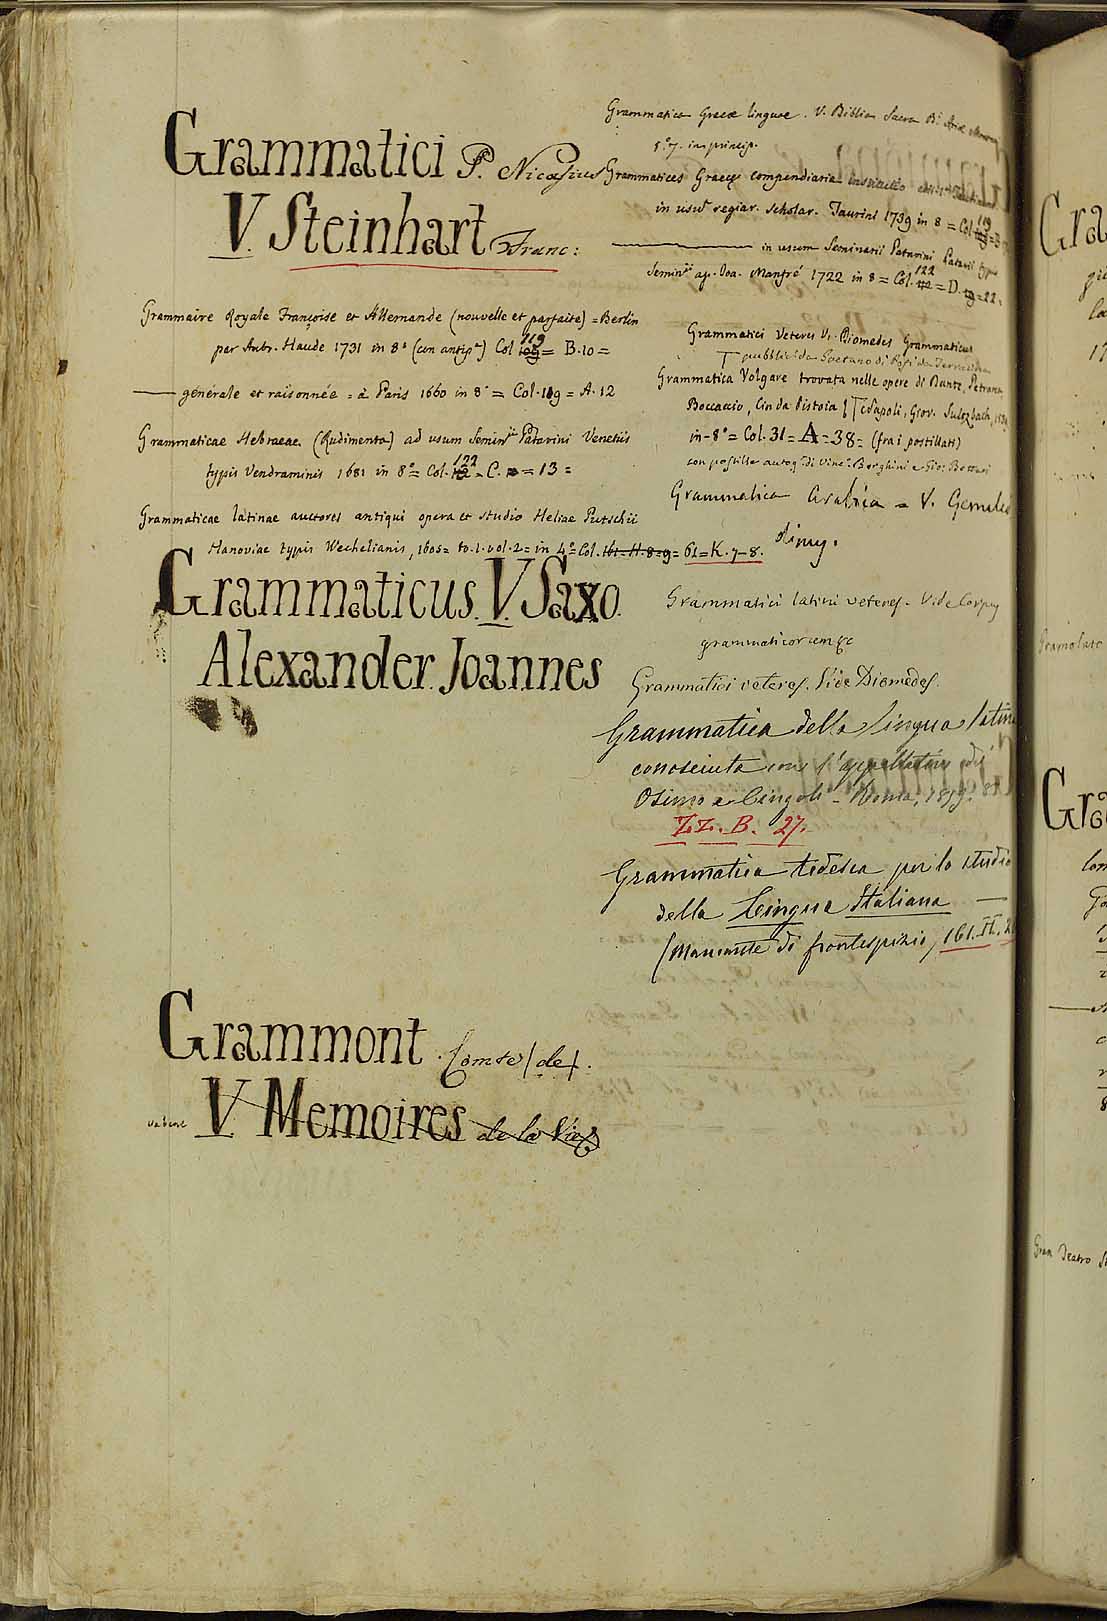 Grammatici P. Nicasius
V. Steinhart Franc:
Grammaire Royale Françoise et Allemande (nouvelle et parfaite) = Berlin
par Ambr. Haude 1731 in 8º Col 119 = B. 10 =
générale et raisonnée = à Paris 1660 in 8º = Col. 119 = A. 12
Grammaticae Hebraeae (Rudimenta) ad usum Semin.ii Patavini Venetiis
typis Vendraminis 1681 in 8º = Col. 122 = C. = 13 =
Grammaticae latinae auctores antiqui opera et studio Heliae Putschii
Hanoviae typis Wechelianis, 1605 = to. 1. vol. 2 = in 4º = Col. 161 = H. 8 = 9 = 61 = K. 7-8.
Grammaticus. V. Saxo.
Alexander. Joannes
Grammont. Comte (de).
V. Memoires de la Vie
Grammatica Graecae linguae. V. Biblia Sacra
in princip.
Grammatices Graecae compendiaria
in usu regiar. scholar. Taurini 1739 in 8 = Col. 119
in usum Seminarii Patavini Patavii typ
Semin.ii ap. Joa. Manfré 1722 in 8 = Col. 122 = D. = 22.
Grammatici Veteres V. Diomedes Grammaticus
pubblicata Gaetano di
Grammatica Volgare trovata nelle opere di Dante, Petrarca
Boccaccio, Cin da Pistoia Napoli, Giov. Sultzbach,
in-8º = Col. 31 = A = 38 = (fra i postillati)
con postille autog. di Vinc. Borghini e Gio. Bottari
Grammatica Arabica = V.
Grammatici latini veteres. Vide Corpus
grammaticorum &c
Grammatici veteres. Vide Diomedes.
Grammatica della lingua latina
conosciuta con l'appellativo di
Osimo e Cingoli - Roma,
ZZ. B. 27.
Grammatica tedesca per lo studio
della Lingua Italiana —
(Mancante di frontespizio, 161. H.
Gra
Gra
Gran Teatro